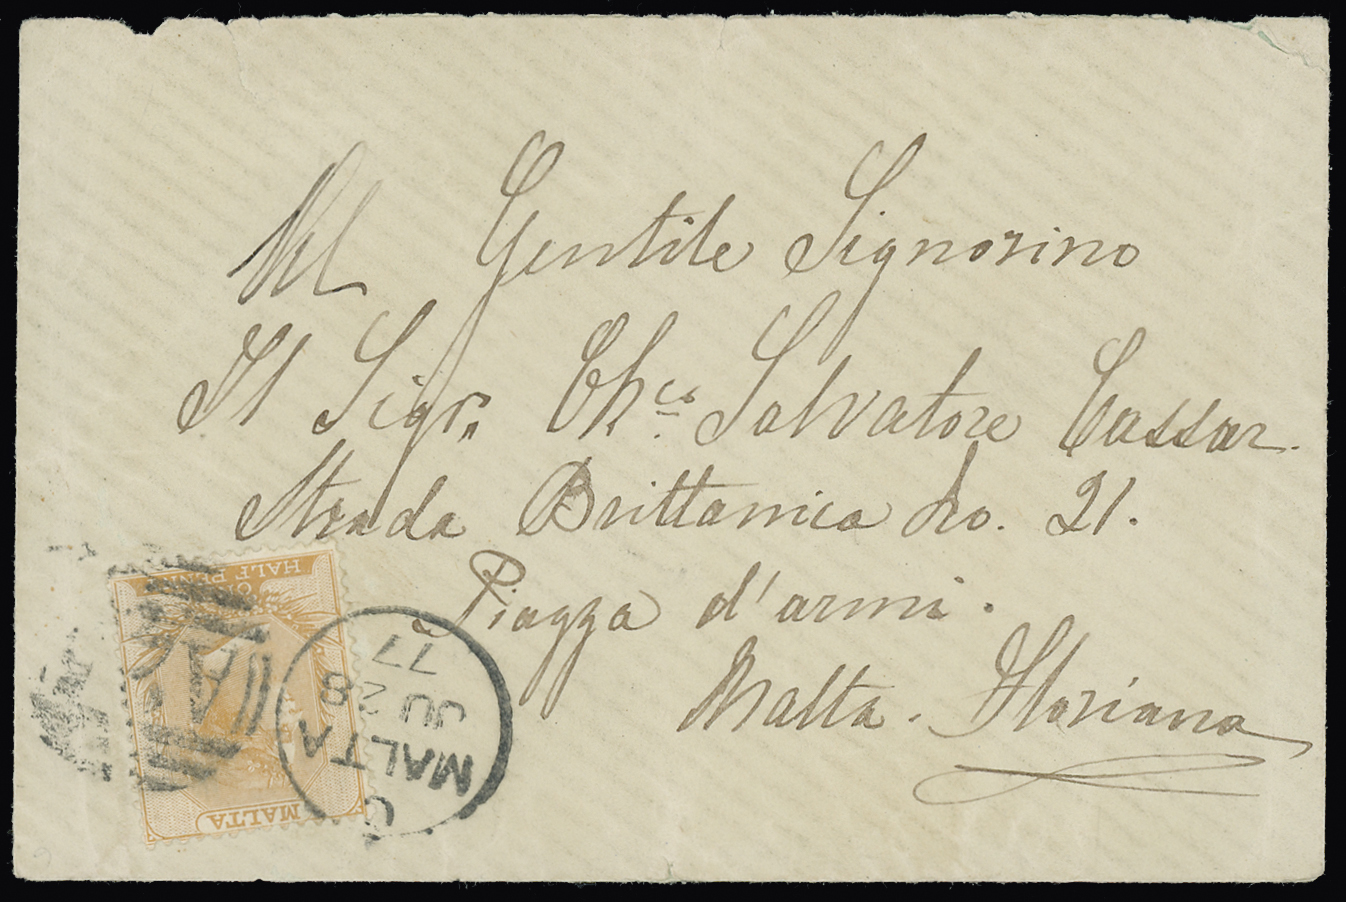 Al Gentile Signorino
Il Sigr. Ch.co Salvatore Cassar.
Strada Brittanica No. 21.
Piazza d'armi.
Malta. Floriana
HALF PENNY
MALTA
A25
C
MALTA
JU 28
77